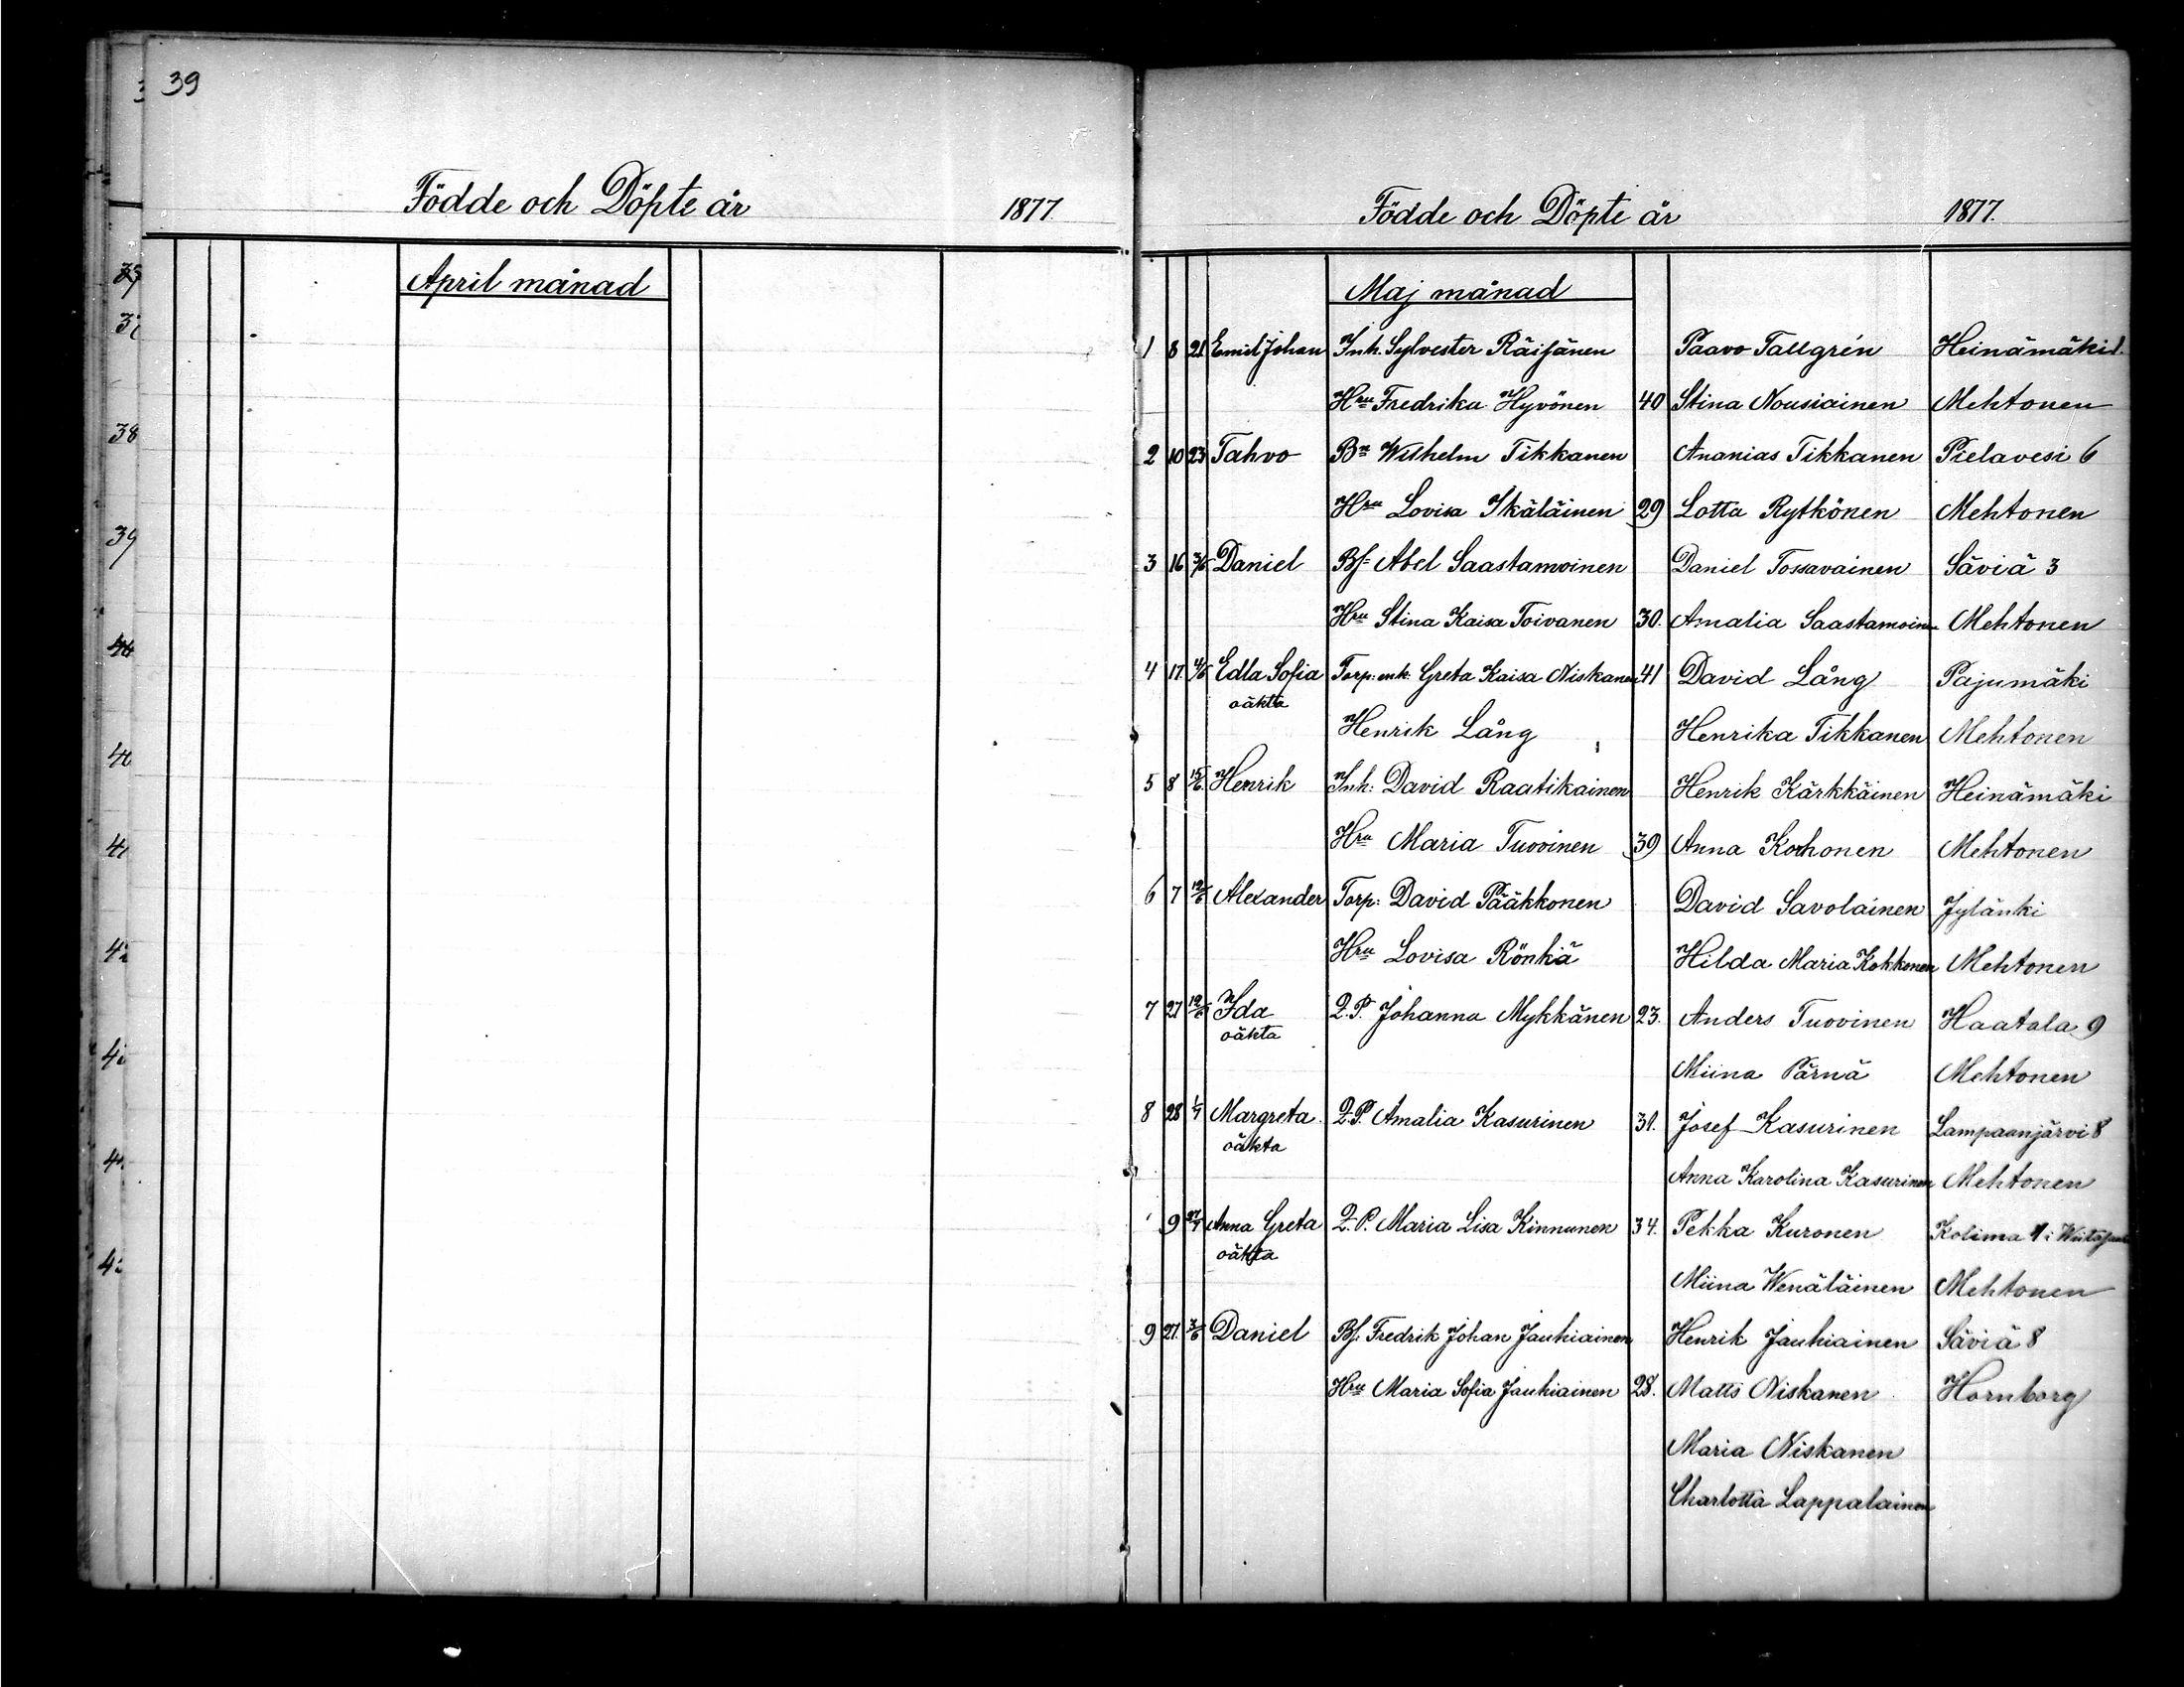 39
Födde och Döpte år 1877.
April månad
39
37
38
39
Födde och Döpte år 1877.
Maj månad
1 8 21 Emil Johan Inh. Sylvester Räisänen Paavo Tallgrén Heinämäki 1.
Hru Fredrika Hyvönen 40 Stina Nousiainen Mehtonen
2 10 23 Tahvo Bn Wilhelm Tikkanen Ananias Tikkanen Pielavesi 6
Hru Lovisa Ikäläinen 29 Lotta Rytkönen Mehtonen
3 16 3/6 Daniel Bf Abel Saastamoinen Daniel Tossavainen Säviä 3
Hru Stina Kaisa Toivanen 30. Amalia Saastamoinen Mehtonen
4 17. 4/6 Edla Sofia Torp: enk: Greta Kaisa Niskanen 41 David Lång Pajumäki
oäkta
Henrik Lång Henrika Tikkanen Mehtonen
5 8 15/6 Henrik Inh: David Raatikainen Henrik Kärkkäinen Heinämäki
Hru Maria Tuovinen 39 Anna Korhonen Mehtonen
6 7 12/6 Alexander Torp: David Pääkkonen David Savolainen Jylänki
Hru Lovisa Rönkä Hilda Maria Kokkonen Mehtonen
7 27 12/6 Ida Q.P. Johanna Mykkänen 23. Anders Tuovinen Haatala 9
oäkta
Miina Pärnä Mehtonen
8 28 1/7 Margreta Q.P. Amalia Kasurinen 31. Josef Kasurinen Lampaanjärvi 8
oäkta
Anna Karolina Kasurinen Mehtonen
9 27/7 Anna Greta Q.P. Maria Lisa Kinnunen 34. Pekka Kuronen Kolima
oäkta
Miina Wenäläinen Mehtonen
9 27. 3/6 Daniel Bf. Fredrik Johan Jauhiainen Henrik Jauhiainen Säviä 8
Hru Maria Sofia Jauhiainen 28. Matts Niskanen Hornborg
Maria Niskanen
Charlotta Lappalainen